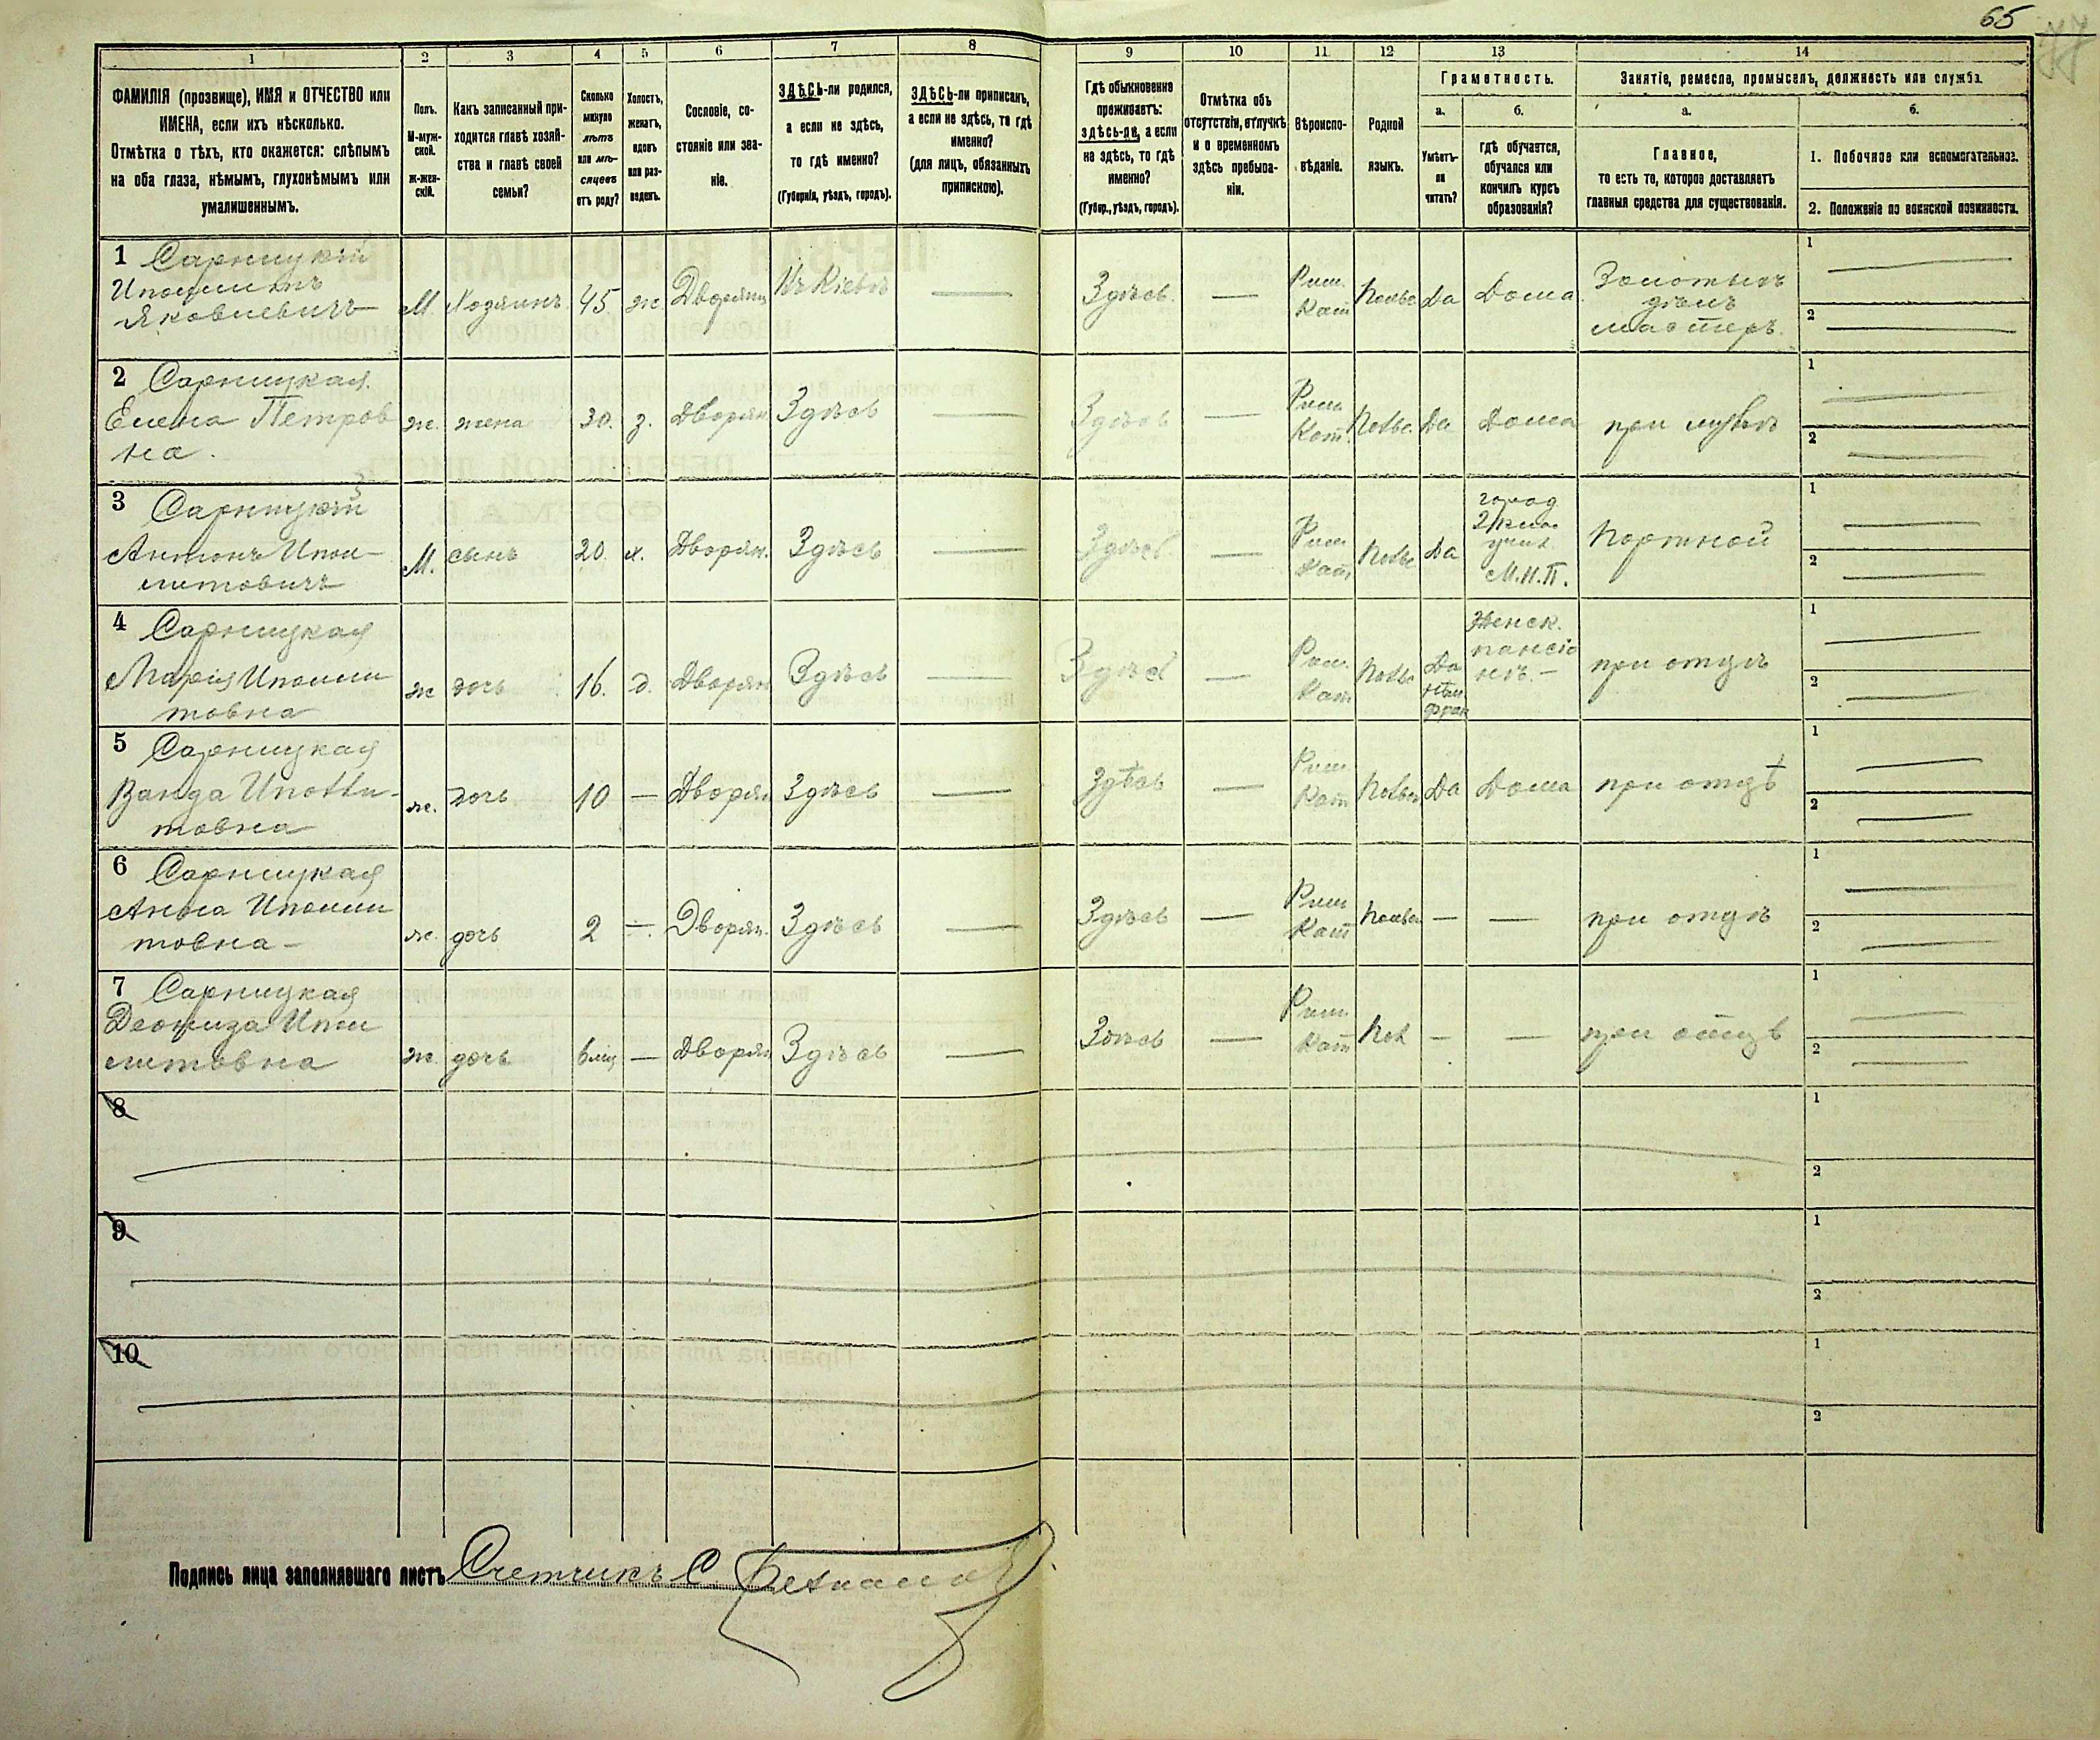 65
1 2 3 4 5 6 7 8 9 10 11 12 13 14
ФАМИЛІЯ (прозвище), ИМЯ и ОТЧЕСТВО или
ИМЕНА, если ихъ нѣсколько.
Отмѣтка о тѣхъ, кто окажется: слѣпымъ
на оба глаза, нѣмымъ, глухонѣмымъ или
умалишеннымъ.
Полъ.
М-муж-
ской.
ж-жен-
скій.
Какъ записанный при-
ходится главѣ хозяй-
ства и главѣ своей
семьи?
Сколько
минуло
лѣтъ
или мѣ-
сяцевъ
отъ роду?
Холостъ,
женатъ,
вдовъ
или раз-
веденъ.
Сословіе, со-
стояніе или зва-
ніе.
ЗДѢСЬ-ли родился,
а если не здѣсь,
то гдѣ именно?
(Губернія, уѣздъ, городъ).
ЗДѢСЬ-ли приписанъ,
а если не здѣсь, то гдѣ
именно?
(для лицъ, обязанныхъ
припискою).
Гдѣ обыкновенно
проживаетъ:
здѣсь-ли, а если
не здѣсь, то гдѣ
именно?
(Губер., уѣздъ, городъ).
Отмѣтка объ
отсутствіи, отлучкѣ
и о временномъ
здѣсь пребыва-
ніи.
Вѣроиспо-
вѣданіе.
Родной
языкъ.
Грамотность.
а.
Умѣетъ-
ли
читать?
б.
гдѣ обучается,
обучался или
кончилъ курсъ
образованія?
Занятіе, ремесло, промыселъ, должность или служба.
а.
Главное,
то есть то, которое доставляетъ
главныя средства для существованія.
б.
1. Побочное или вспомогательное.
2. Положеніе по воинской повинности.
1 Сарницкій
Ипполитъ
Яковлевичъ
М. Хозяинъ 45 ж. Дворянин Въ Кіевѣ — Здѣсь. — Рим. Кат Польс Да Дома Золотыхъ
дѣлъ
мастеръ.
1 —
2 —
2 Сарницкая.
Елена Петров
на.
ж. жена 30. з. Дворян Здѣсь — Здѣсь — Рим Кат. Польс. Да Дома при мужѣ
1 —
2 —
3 Сарницкій
Антонъ Ипол-
литовичъ
М. сынъ 20. х. Дворян. Здѣсь — Здѣсь — Рим Кат. Польс Да город
2 клас
учил.
М.Н.П.
Портной
1 —
2 —
4 Сарницкая
Марія Иполли
товна
ж дочь 16. д. Дворян Здѣсь — Здѣсь — Рим. Кат Польс Да
нѣм
фран
Женск.
пансіо
нѣ. —
при отцѣ
1 —
2 —
5 Сарницкая
Ванда Иполли-
товна
ж. дочь 10 — Дворян Здѣсь — Здѣсь — Рим Кат Польск Да Дома при отцѣ
1 —
2 —
6 Сарницкая
Анна Иполли
товна —
ж. дочь 2 —. Дворян. Здѣсь — Здѣсь — Рим Кат Польск — — при отцѣ
1 —
2 —
7 Сарницкая
литовна
ж. дочь 6 мѣц — Дворян Здѣсь — Здѣсь — Рим. Кат Пол — — при отцѣ
1 —
2 —
8
1
2
9
1
2
10
1
2
Подпись лица заполнявшаго листъ Счетчикъ С.